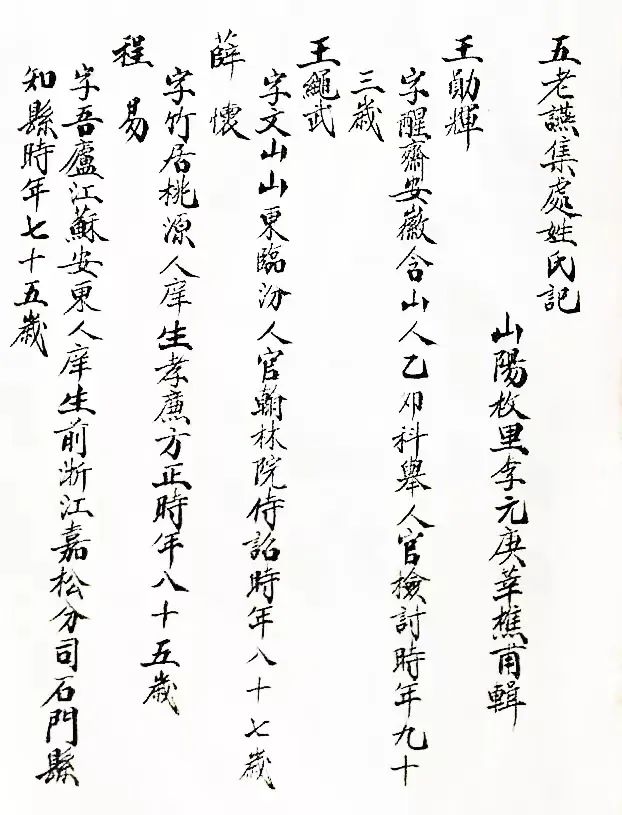 五老讌集處姓氏記
山陽枚里李元庚莘樵甫輯
王勛輝
字醒齋安徽含山人乙卯科舉人官檢討時年九十
三歲
王繩武
字文山山東臨汾人官翰林院侍詔時年八十七歲
薛懷
字竹居桃源人庠生孝廉方正時年八十五歲
程易
字吾廬江蘇安東人庠生前浙江嘉松分司石門縣
知縣時年七十五歲